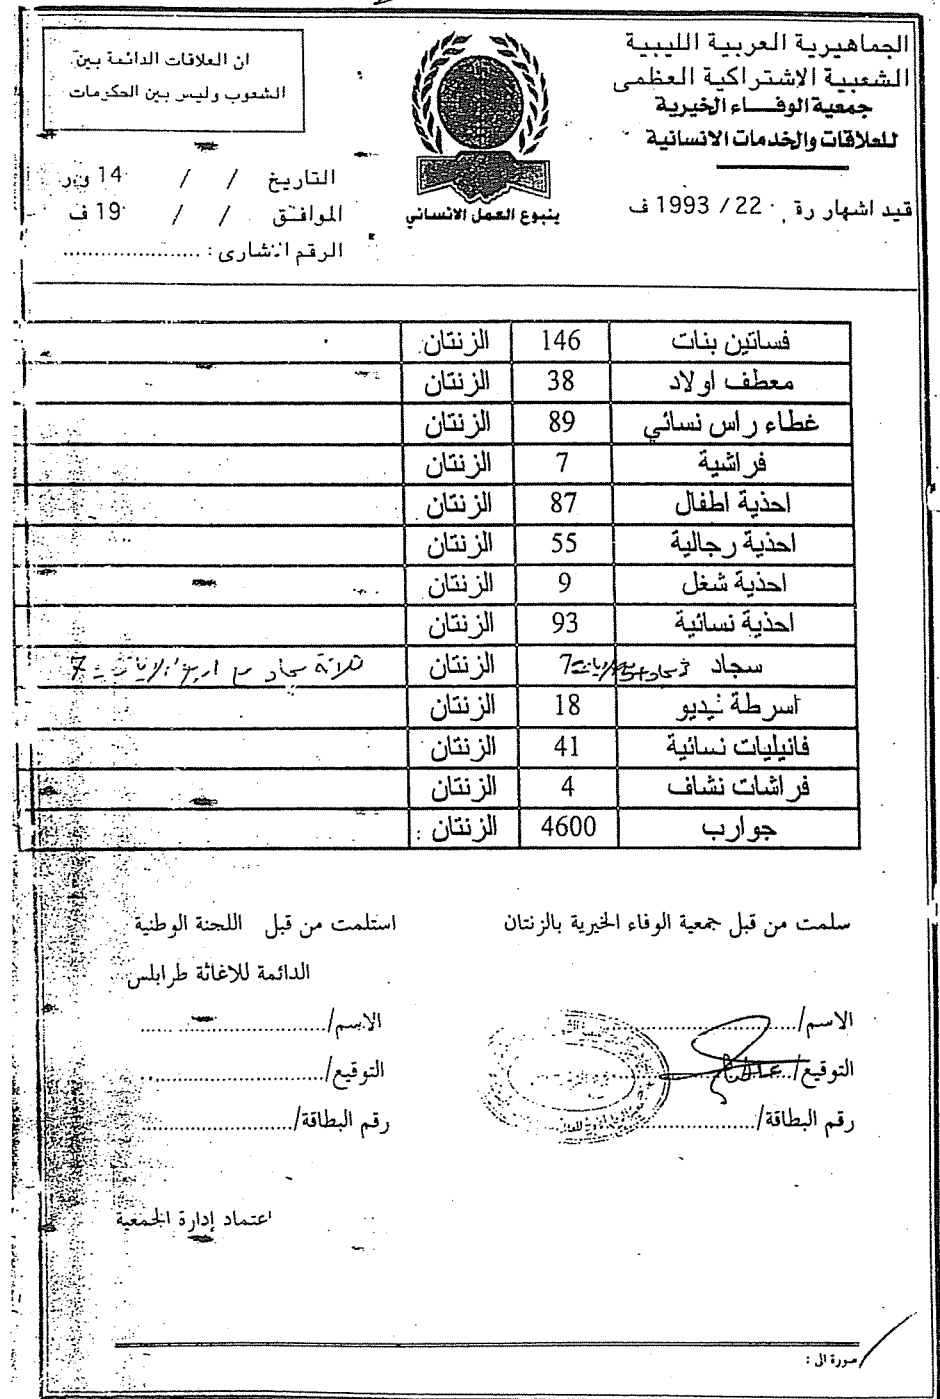 الجماهيرية العربية الليبية
الشعبية الإشتراكية العظمى
جمعية الوفــاء الخيرية
للعلاقات والخدمات الانسانية
قيد اشهار رة 22 / 1993 ف
ينبوع العمل الانساني
ان العلاقات الدائمة بين
الشعوب وليس بين الحكومات
التاريخ / / 14 و.ر
الموافق / / 19 ف
الرقم الاشارى : ....................
فساتين بنات 146 الزنتان
معطف اولاد 38 الزنتان
غطاء راس نسائي 89 الزنتان
فراشية 7 الزنتان
احذية اطفال 87 الزنتان
احذية رجالية 55 الزنتان
احذية شغل 9 الزنتان
احذية نسائية 93 الزنتان
سجاد 7 الزنتان ثلاثة سجاد مع اربع 7
اسرطة فيديو 18 الزنتان
فانيليات نسائية 41 الزنتان
فراشات نشاف 4 الزنتان
جوارب 4600 الزنتان
سلمت من قبل جمعية الوفاء الخيرية بالزنتان
استلمت من قبل اللجنة الوطنية
الدائمة للاغاثة طرابلس
الاسم/..............................
التوقيع/..............................
رقم البطاقة/..............................
الاسم/..............................
التوقيع/..............................
رقم البطاقة/..............................
اعتماد إدارة الجمعية
صورة الى :